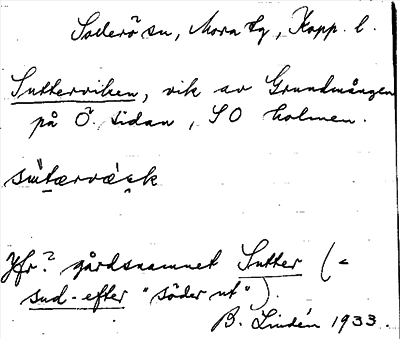 Solerö sn, Mora tg, Kopp. l.
Sutterviken, vik av Grundmången
på Ö. sidan, SO holmen.
Jfr? gårdsnamnet Sutter (=
sud-efter "söder ut").
B. Lindén 1933.